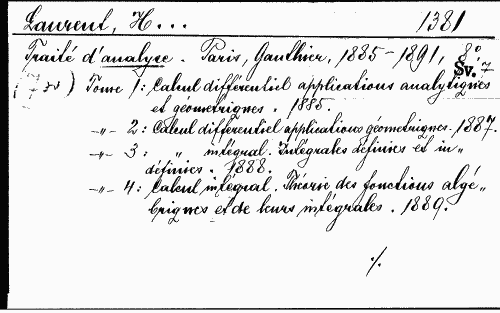 Laurent, H... 1381
Traité d'analyse. Paris, Gauthier, 1885-1891, 8°
Sv. 7
Tome 1: Calcul différentiel applications analytiques
et géometriques. 1885.
-"- 2: Calcul differentiel applications géometriques. 1887.
-"- 3: " intégral. Intégrales définies et in"
définies. 1888.
-"- 4: Calcul intégral. Théorie des fonctions algé"
briques et de leurs intégrales. 1889.
·/.